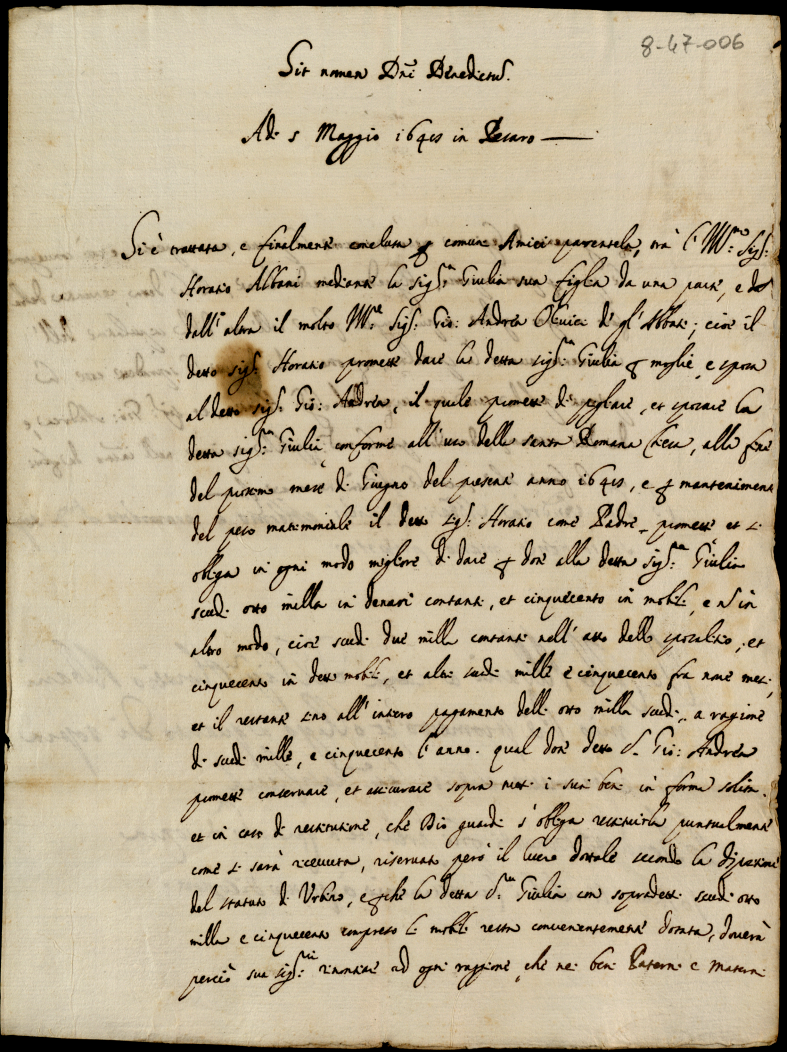 8-47-006
Sit nomen Dni Benedictu.
Adi 5 Maggio 1645 in Pesaro
Si è trattata, e finalmente conclusa p comuni Amici parentela, trà l' Ill.mo Sig.r
Horatio Albani mediante la sig.ra Giulia sua figlia da una parte, e
dall' altra il molto Ill.re Sig.r Gio: Andrea de gl' Abbati; cioè il
detto sig.r Horatio promette dare la detta sig.ra Giulia p moglie, e sposa
al detto sig.r Gio: Andrea, il quale promette di pigliare, et sposare la
detta sig.ra Giulia conforme all' uso della santa Romana Chiesa, alla fine
del prossimo mese di Giugno del presente anno 1645, e p mantenimento
del peso matrimoniale il detto sig.r Horatio come Padre promette et si
obliga in ogni modo migliore di dare p dote alla detta sig.ra Giulia
scudi otto milla in denari contanti, et cinquecento in mobili, e nō in
altro modo, cioè scudi due milla contanti nell' atto dello sposalitio, et
cinquecento in detti mobili, et altri scudi mille e cinquecento fra nove mesi,
et il restante sino all' intiero pagamento delli otto milla scudi, a ragione
di scudi mille, e cinquecento l' anno. qual dote detto S. Gio: Andrea
promette conservare, et assicurare sopra tutti i suoi beni in forma solita.
et in caso di restitutione, che Dio guardi s' obliga restituirla puntualmente
come si sarà ricevuta, riservato però il lucro dottale secondo la dispositione
del statuto di Urbino, e pche la detta S.ra Giulia con sopradetti scudi otto
milla e cinquecento compreso li mobili resta convenientemente dotata, doverà
perciò sua sig.ria rinontiare ad ogni raggione, che ne beni Paterni e Materni